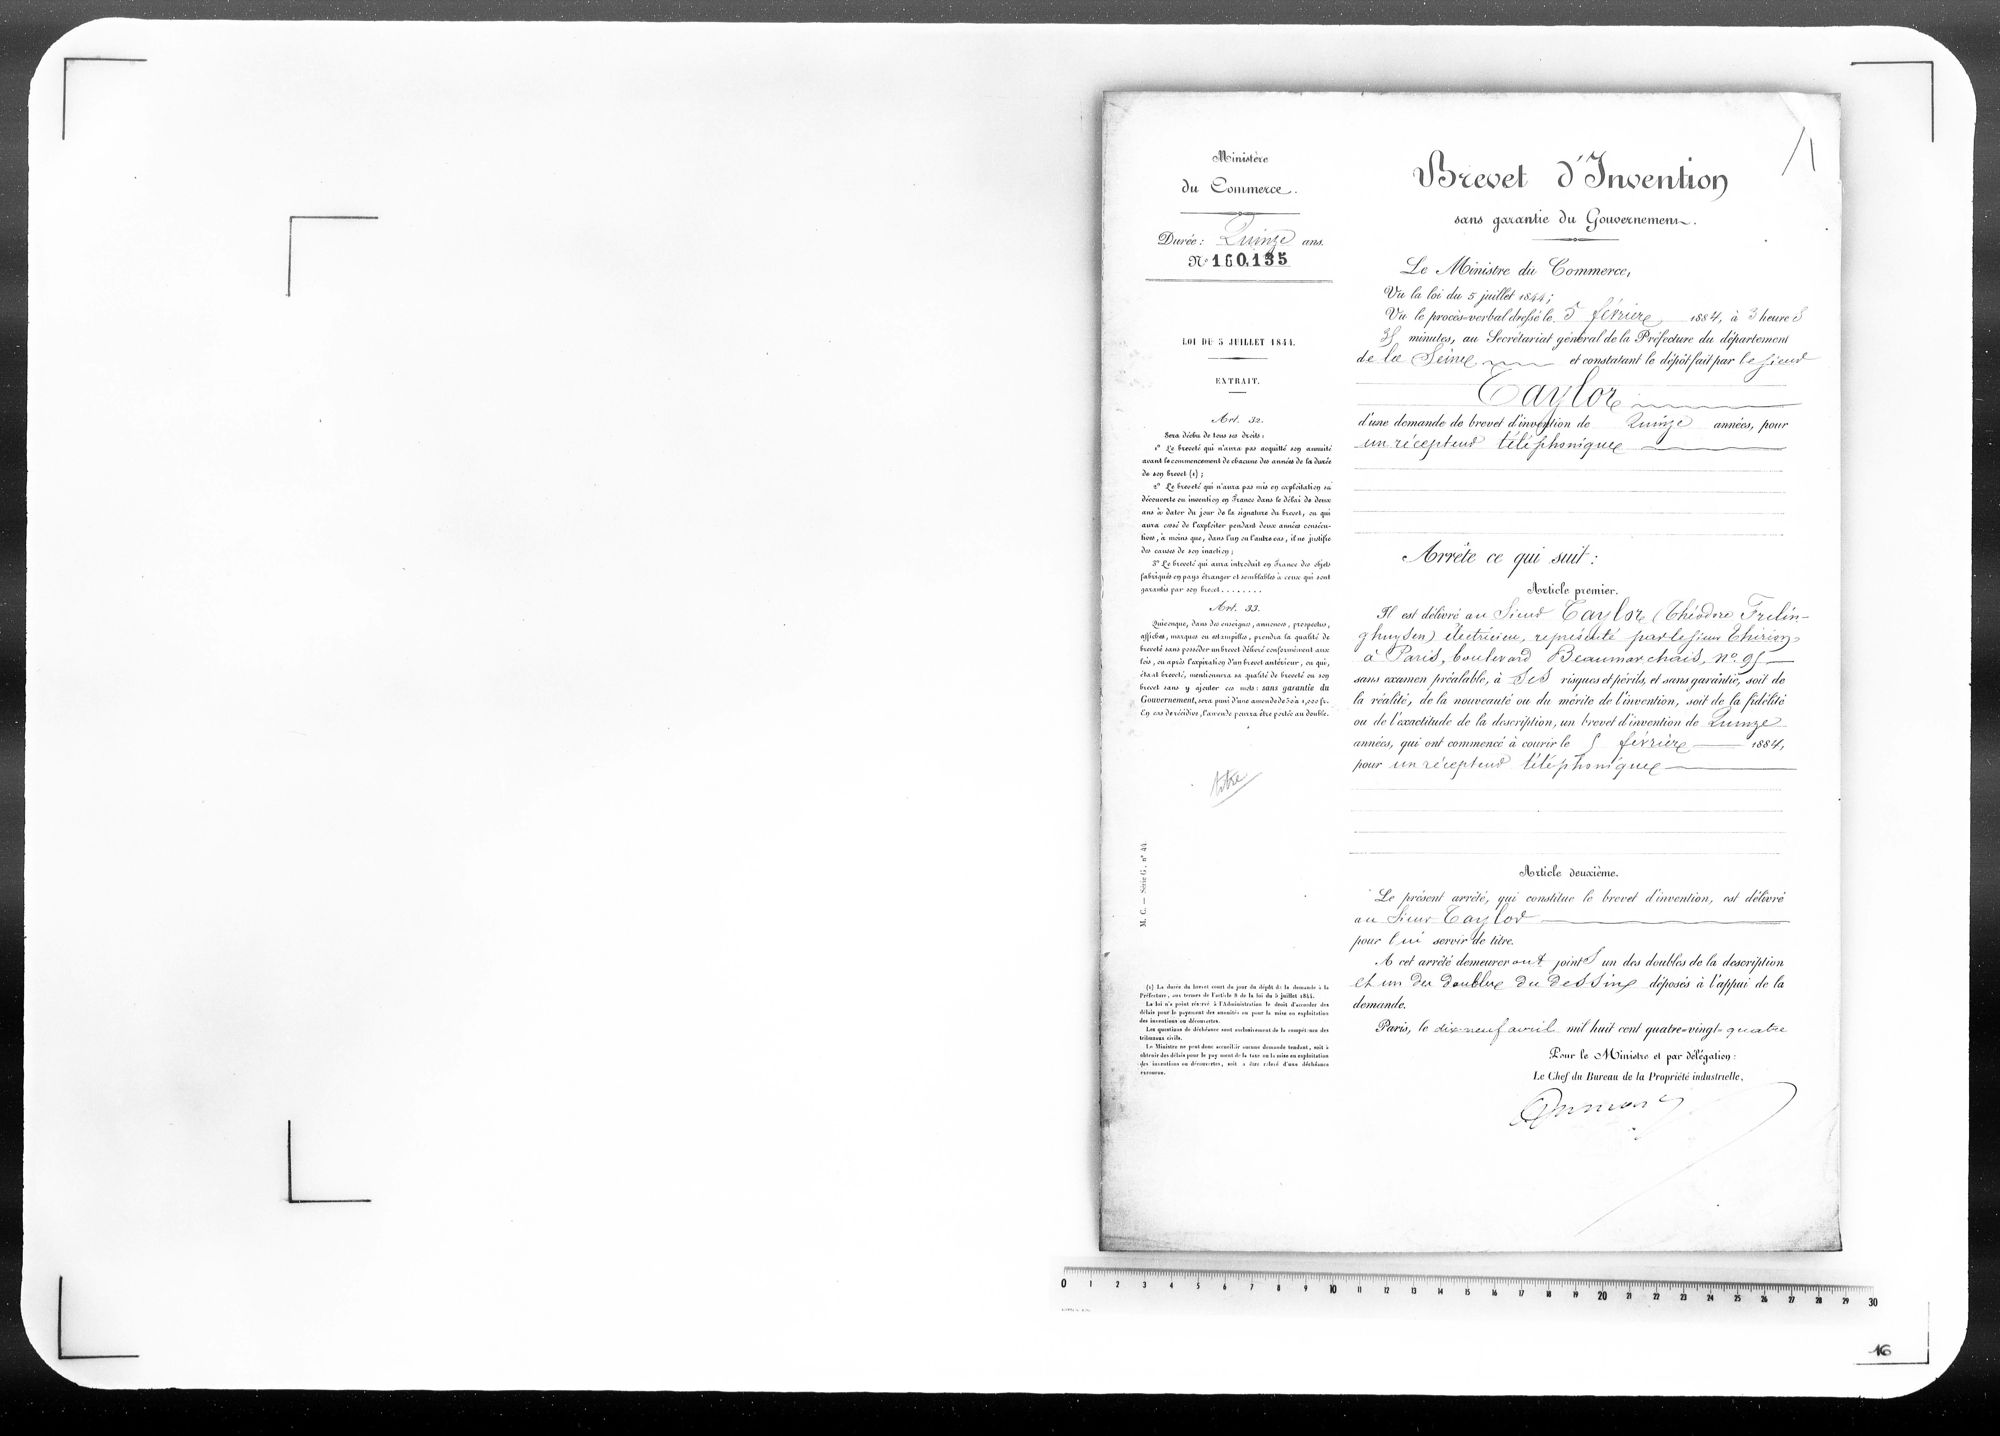 Ministère
du Commerce.
Durée : Quinze ans.
N° 160,135
LOI DU 5 JUILLET 1844.
EXTRAIT.
Art. 32.
Sera déchu de tous ses droits :
1° Le breveté qui n'aura pas acquitté son annuité
avant le commencement de chacune des années de la durée
de son brevet (1) ;
2° Le breveté qui n'aura pas mis en exploitation sa
découverte ou invention en France dans le délai de deux
ans à dater du jour de la signature du brevet, ou qui
aura cessé de l'exploiter pendant deux années consécu-
tives, à moins que, dans l'un ou l'autre cas, il ne justifie
des causes de son inaction ;
3° Le breveté qui aura introduit en France des objets
fabriqués en pays étranger et semblables à ceux qui sont
garantis par son brevet........
Art. 33.
Quiconque, dans des enseignes, annonces, prospectus,
affiches, marques ou estampilles, prendra la qualité de
breveté sans posséder un brevet délivré conformément aux
lois, ou après l'expiration d'un brevet antérieur, ou qui,
étant breveté, mentionnera sa qualité de breveté ou son
brevet sans y ajouter ces mots : sans garantie du
Gouvernement, sera puni d'une amende de 50 à 1,000 fr.
En cas de récidive, l'amende pourra être portée au double.
M. C. — Série G, n° 44
(1) La durée du brevet court du jour du dépôt de la demande à la
Préfecture, aux termes de l'article 8 de la loi du 5 juillet 1844.
La loi n'a point réservé à l'Administration le droit d'accorder des
délais pour le payement des annuités ou pour la mise en exploitation
des inventions ou découvertes.
Les questions de déchéance sont exclusivement de la compétence des
tribunaux civils.
Le Ministre ne peut donc accueillir aucune demande tendant, soit à
obtenir des délais pour le payement de la taxe ou la mise en exploitation
des inventions ou découvertes, soit à être relevé d'une déchéance
encourue.
Brevet d'Invention
sans garantie du Gouvernement.
Le Ministre du Commerce,
Vu la loi du 5 juillet 1844 ;
Vu le procès-verbal dressé le 5 février 1884, à 3 heures
35 minutes, au Secrétariat général de la Préfecture du département
de la Seine et constatant le dépôt fait par le sieur
Taylor
d'une demande de brevet d'invention de quinze années, pour
un récepteur téléphonique
Arrête ce qui suit :
Article premier.
Il est délivré au Sieur Taylor (Théodore Frelin-
ghuysen) électricien, représenté par le sieur Thirion,
à Paris, boulevard Beaumarchais, n° 95
sans examen préalable, à ses risques et périls, et sans garantie, soit de
la réalité, de la nouveauté ou du mérite de l'invention, soit de la fidélité
ou de l'exactitude de la description, un brevet d'invention de quinze
années, qui ont commencé à courir le 5 février 1884,
pour un récepteur téléphonique
Article deuxième.
Le présent arrêté, qui constitue le brevet d'invention, est délivré
au Sieur Taylor
pour lui servir de titre.
A cet arrêté demeureront joints un des doubles de la description
et un des doubles du dessin déposés à l'appui de la
demande.
Paris, le dix-neuf avril mil huit cent quatre-vingt-quatre
Pour le Ministre et par délégation :
Le Chef du Bureau de la Propriété industrielle,
0 1 2 3 4 5 6 7 8 9 10 11 12 13 14 15 16 17 18 19 20 21 22 23 24 25 26 27 28 29 30
16